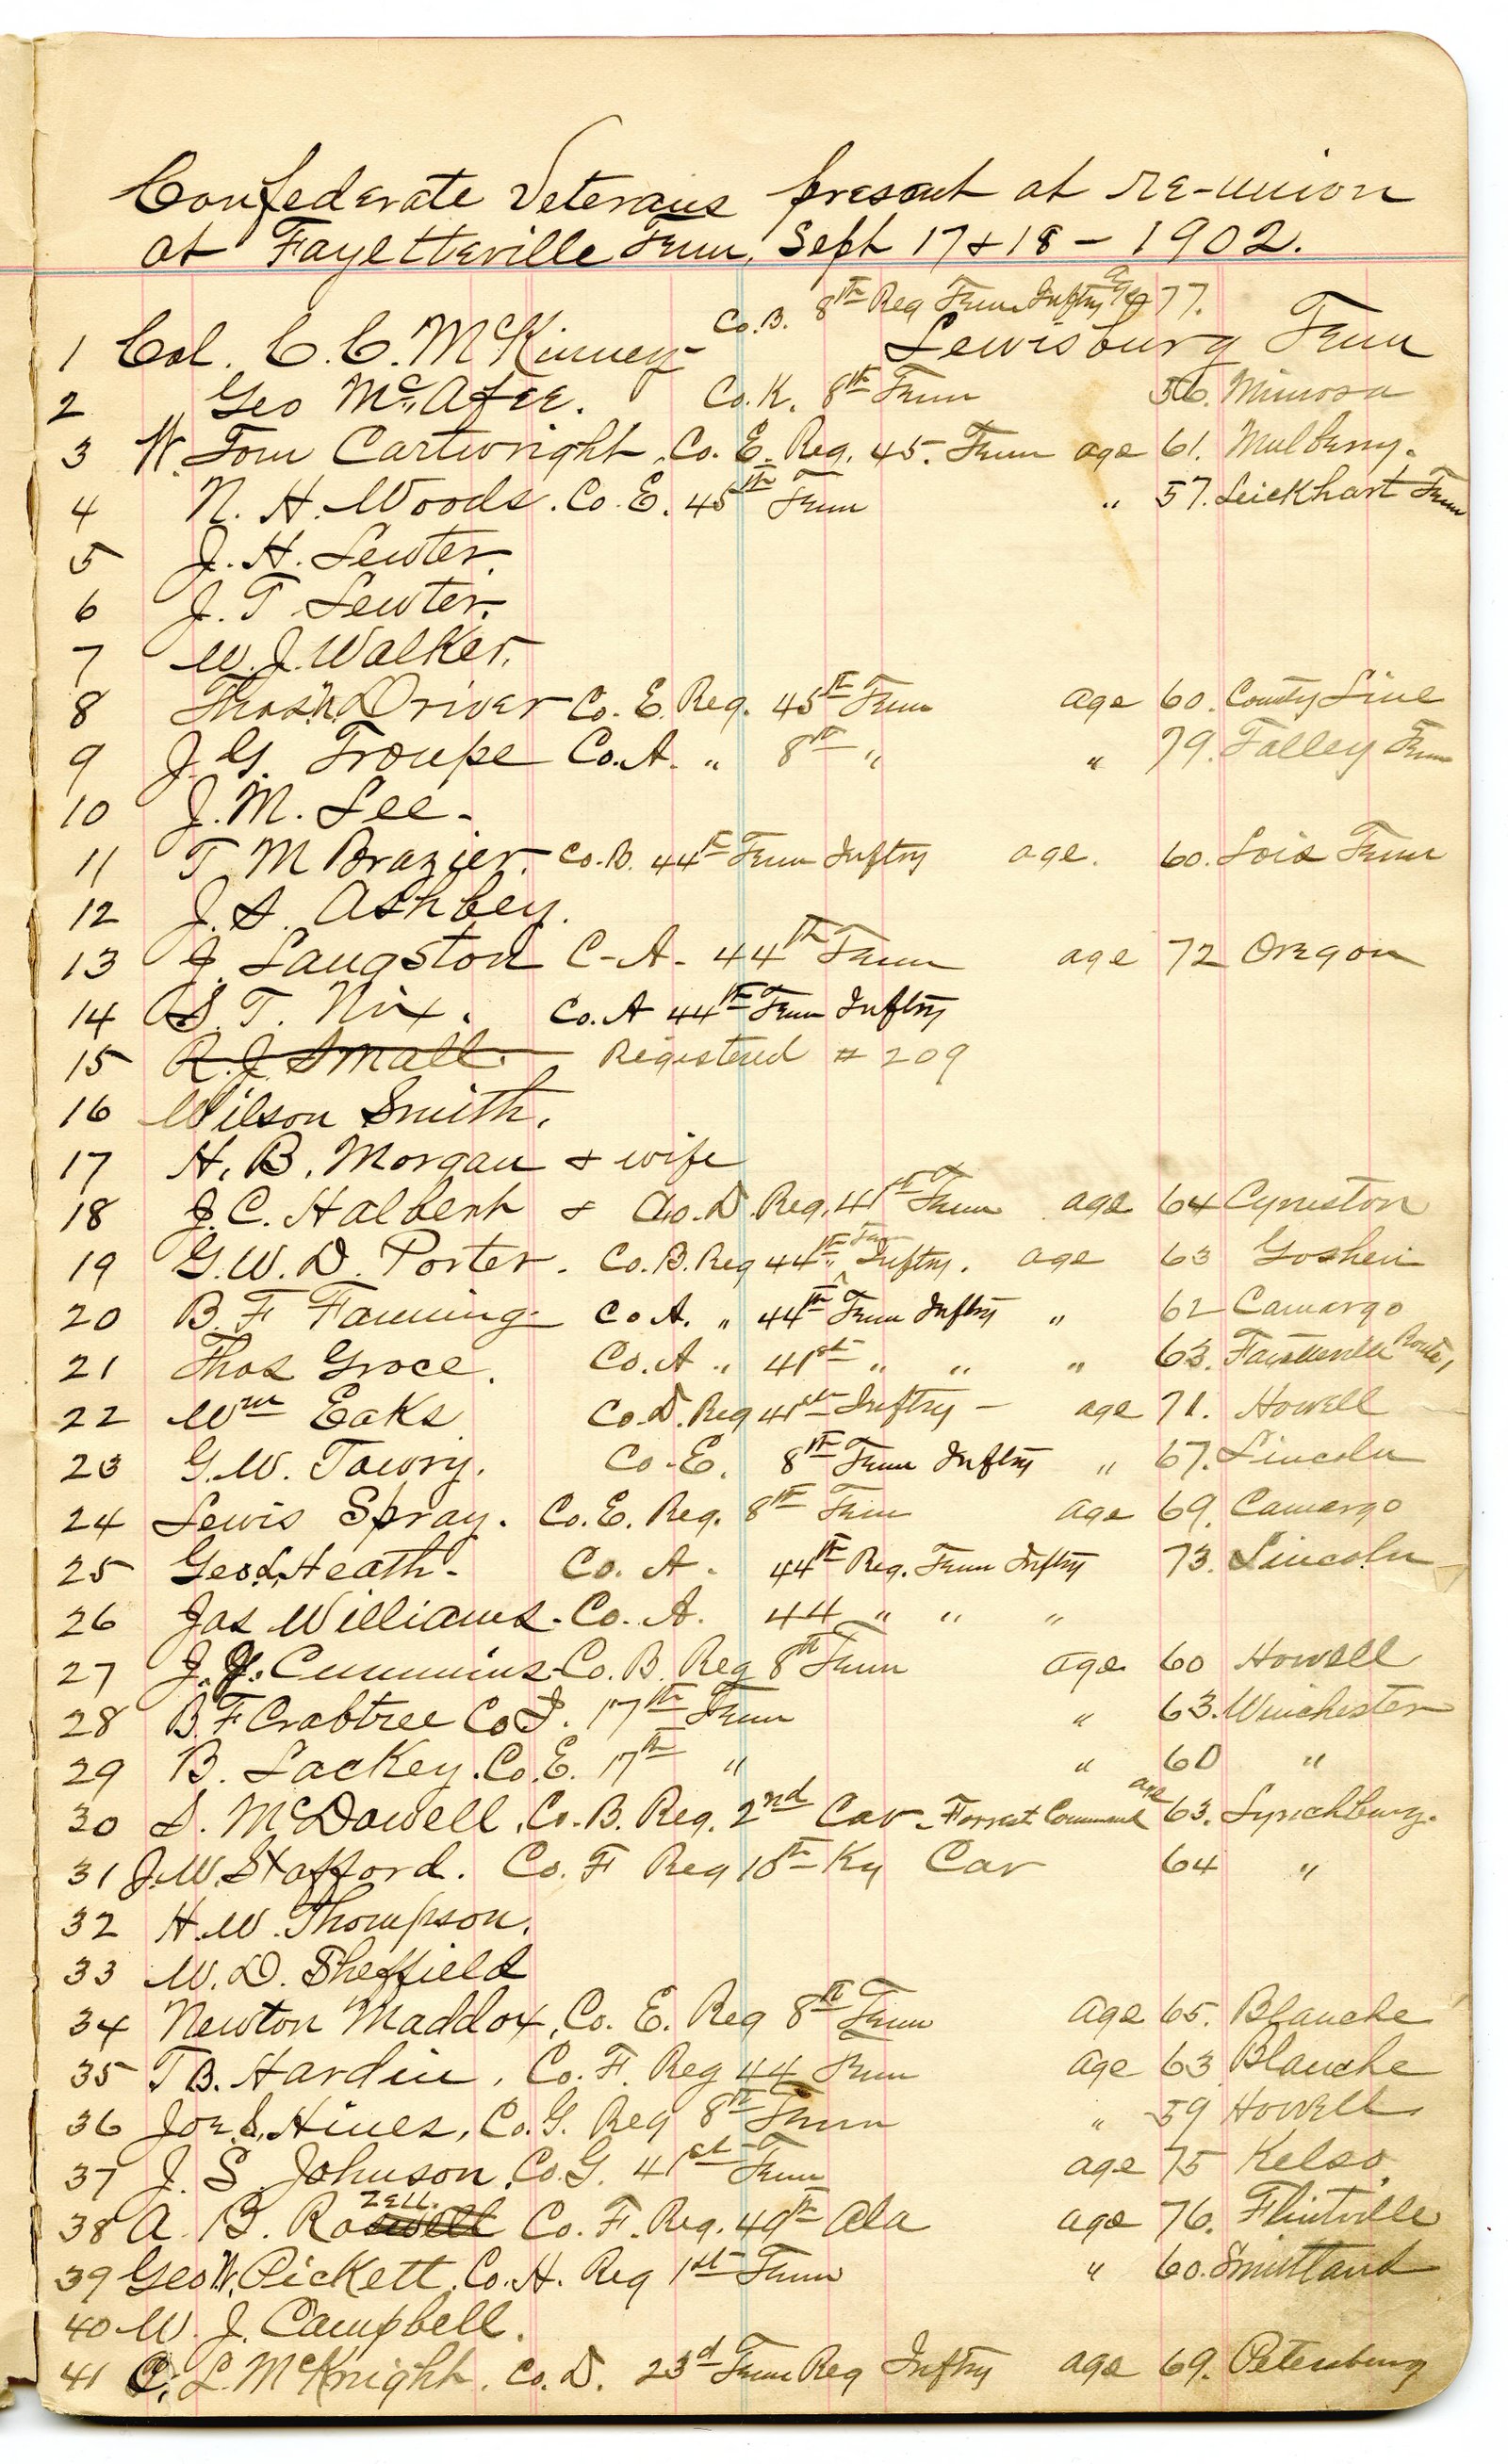 Confederate Veterans present at re-union
at Fayetteville Tenn, Sept 17 & 18 - 1902.
Co. B. 8th Reg Tenn Inftry age 77.
1 Col. C. C. McKinney Lewisburg Tenn
2 Geo McAfee. Co. K. 8th Tenn 56. Mimosa
3 W. Tom Cartwright, Co. E. Reg. 45. Tenn age 61. Mulberry.
4 N. H. Woods. Co. E. 45th Tenn " 57. Tenn
5 J. H. Lewter.
6 J. T Lewter.
7 W. J. Walker.
8 Thos. N. Driver Co. E. Reg. 45th Tenn age 60. County Line
9 J. G. Troupe Co. A. " 8th " " 79. Talley Tenn
10 J. M. Lee -
11 T M Brazier. Co. B. 44th Tenn Inftry age. 60. Lois Tenn
12 J. S. Ashbey.
13 J. Langston C-A- 44th Tenn age 72 Oregon
14 S. T. Nix. Co. A 44th Tenn Inftry
15 R. J. Small. Registered # 209
16 Wilson Smith.
17 H. B. Morgan & wife
18 J. C. Halbert & Co. D. Reg. 41st Tenn age 64 Cyruston
19 G. W. D. Porter. Co. B. Reg 44th Tenn Inftry. age 63 Goshen
20 B. F Fanning Co A. " 44th Tenn Inftry " 62 Camargo
21 Thos Groce. Co. A " 41st " " " 63. Fayetteville Route 1
22 Wm Eaks Co. D. Reg 41st Inftry - age 71. Howell
23 G. W. Towry. Co. E. 8th Tenn Inftry " 67. Lincoln
24 Lewis Spray. Co. E. Reg. 8th Tenn age 69. Camargo
25 Geo. L. Heath. Co. A. 44th Reg. Tenn Inftry 73. Lincoln
26 Jas Williams. Co. A. 44 " " "
27 J. Y. Cummins Co. B. Reg 8th Tenn age 60 Howell
28 B. F Crabtree Co I. 17th Tenn " 63. Winchester
29 B. Lackey. Co. E. 17th " " 60 "
30 S. McDowell, Co. B. Reg. 2nd Cav - Forrest Command age 63. Lynchburg.
31 J. W. Stafford. Co. F Reg 10th Ky Cav 64 "
32 H. W. Thompson.
33 W. D. Sheffield
34 Newton Maddox, Co. E. Reg 8th Tenn age 65. Blanche
35 T B. Hardin, Co. F. Reg 44 Tenn age 63 Blanche
36 Joe S. Hines, Co. G. Reg 8th Tenn " 59 Howell
37 J. S. Johnson, Co. G. 41st Tenn age 75 Kelso
38 A. B. Rozell Co. F. Reg. 49th Ala age 76. Flintville
39 Geo W. Pickett, Co. H. Reg 1st Tenn " 60. Smithland
40 W. J. Campbell.
41 C. L. McKnight, Co. D. 23d Tenn Reg Inftry age 69. Petersburg